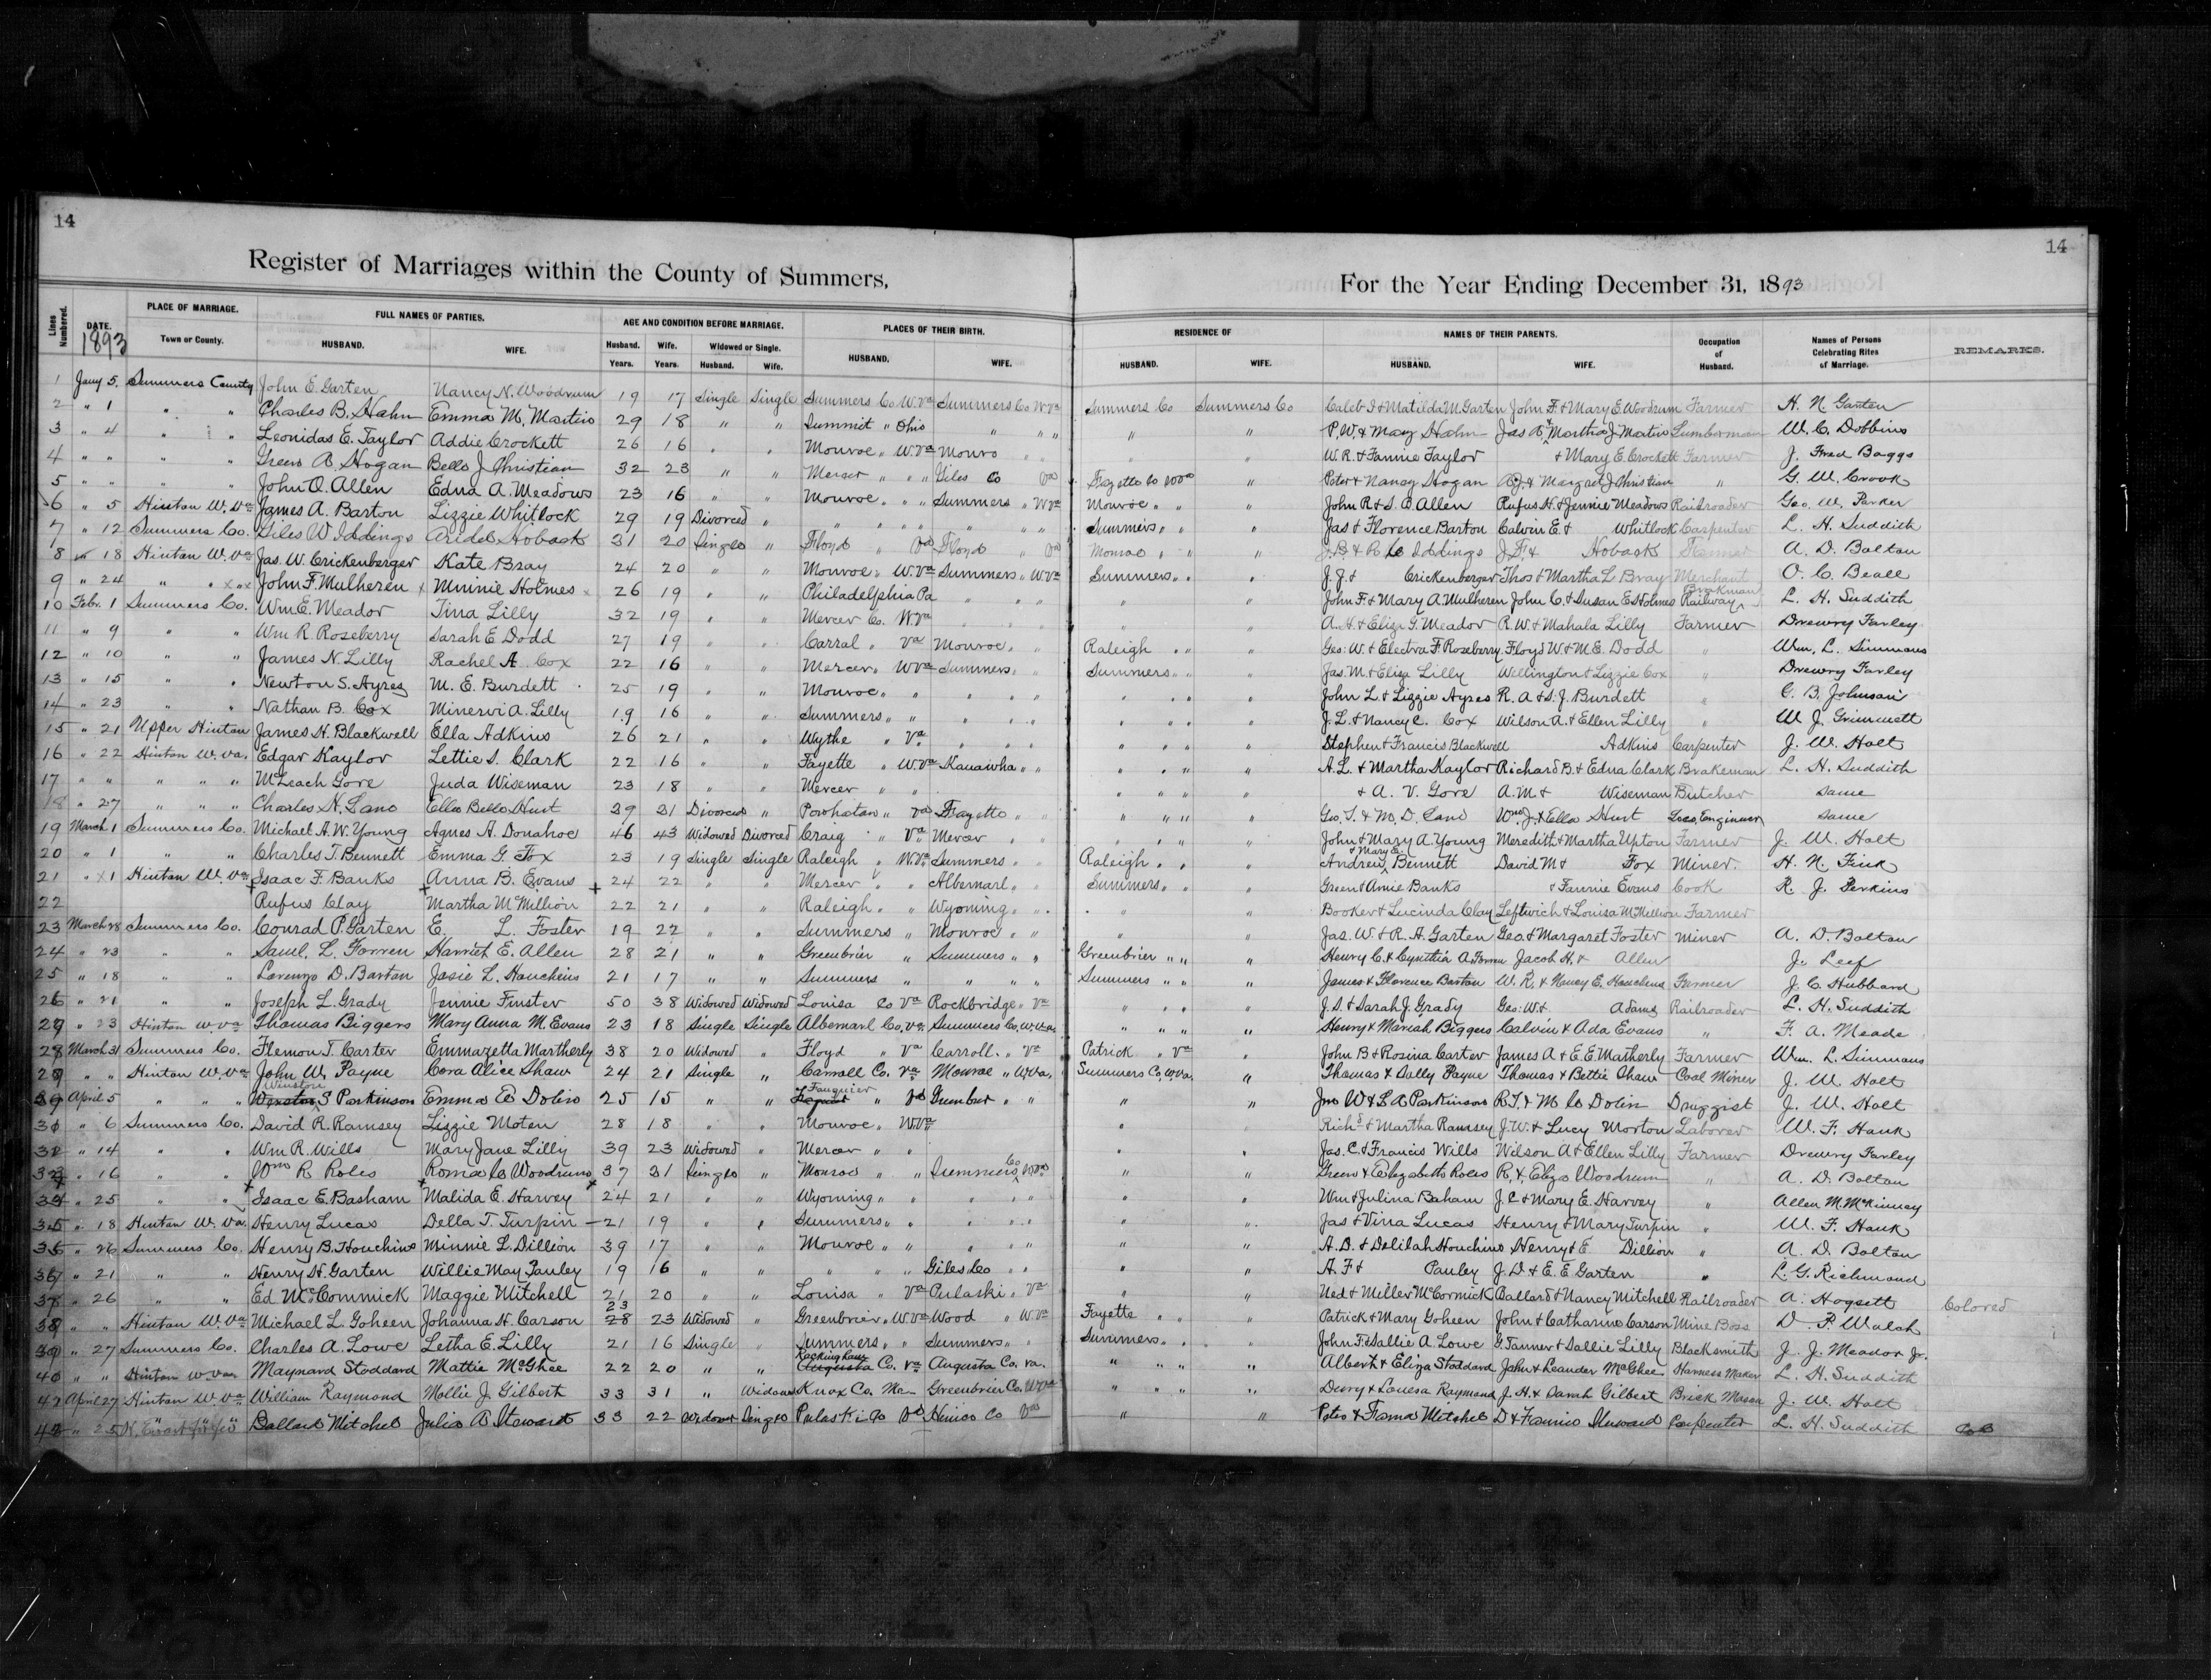 14
14
Register of Marriages within the County of Summers, For the Year Ending December 31, 1893
Lines Numbered. DATE. 1893 PLACE OF MARRIAGE. Town or County. FULL NAMES OF PARTIES. HUSBAND. WIFE. AGE AND CONDITION BEFORE MARRIAGE. Husband. Years. Wife. Years. Widowed or Single. Husband. Wife. PLACES OF THEIR BIRTH. HUSBAND. WIFE. RESIDENCE OF HUSBAND. WIFE. NAMES OF THEIR PARENTS. HUSBAND. WIFE. Occupation of Husband. Names of Persons Celebrating Rites of Marriage. REMARKS.
1 Jany 5. Summers County John E. Garten Nancy N. Woodrum 19 17 Single Single Summers Co W.Va Summers Co W.Va Summers Co Summers Co Caleb I & Matilda M Garten John F. & Mary E. Woodrum Farmer H. N. Garten
2 " 1 " " Charles B. Hahn Emma M. Martin 29 18 " " Summit " Ohio " " " " " P. W. & Mary Hahn Jas A & Martha J Martin Lumberman W. C. Dobbins
3 " 4 " " Leonidas E. Taylor Addie Crockett 26 16 " " Monroe " W.Va Monro " " W. R. & Fannie Taylor & Mary E. Crockett Farmer J. Fred Baggs
4 " " " " Green A Hogan Belle J Christian 32 23 " " Mercer " " Giles Co Va Fayette Co W Va " Peter & Nancy Hogan A. J. & Margret J Christian " G. W. Crook
5 " " " " John O. Allen Edna A. Meadows 23 16 " " Monroe " " Summers " W Va Monroe " " " John R & S. C Allen Rufus H. & Jennie Meadows Railroader Geo. W. Parker
6 " 5 Hinton W. Va James A. Barton Lizzie Whitlock 29 19 Divorced " " " " " " Summers " " " Jas & Florence Barton Calvin E & Whitlock Carpenter L. H. Suddith
7 " 12 Summers Co. Giles W Iddings Hoback 31 20 Single " Floyd " Va Floyd " Va Monroe " " " Iddings J. F & Hoback Farmer A. D. Bolton
8 " 18 Hinton W. Va Jas. W. Crickenberger Kate Bray 24 20 " " Monroe " W.Va Summers " W Va Summers " " " J. J. & Crickenberger Thos & Martha L Bray Merchant O. C. Beall
9 " 24 " " John F. Mulheren Minnie Holmes 26 19 " " Philadelphia Pa " " " " " John F. & Mary A. Mulheren John C. & Susan E Holmes Railway Brakeman L. H. Suddith
10 Febr. 1 Summers Co. Wm E. Meador Tina Lilly 32 19 " " Mercer Co. W. Va " " " " " A. H. & Eliza G. Meador R. W. & Mahala Lilly Farmer Drewry Farley
11 " 9 " " Wm R. Roseberry Sarah E Dodd 27 19 " " Carral " Va Monroe " " Raleigh " " " Geo: W. & Electra F Roseberry Floyd W & M. E. Dodd " Wm. L. Simmons
12 " 10 " " James N. Lilly Rachel A Cox 22 16 " " Mercer " W Va Summers " " Summers " " " Jas. M. & Eliza Lilly Wellington & Lizzie Cox " Drewry Farley
13 " 15 " " Newton S. Ayres M. E. Burdett 25 19 " " Monroe " " " " " " " " John L. & Lizzie Ayres R. A & S. J. Burdett " C. B. Johnson
14 " 23 " " Nathan B. Cox Minervi A. Lilly 19 16 " " Summers " " " " " " " " J. L. & Nancy C. Cox Wilson A. & Ellen Lilly " W. J. Grimmett
15 " 21 Upper Hinton James H. Blackwell Ella Adkins 26 21 " " Wythe " Va " " " " " " " Stephen & Francis Blackwell Adkins Carpenter J. W. Holt
16 " 22 Hinton W. Va. Edgar Kaylor Lettie S. Clark 22 16 " " Fayette " W.Va Kanawha " " " " " " A. L. & Martha Kaylor Richard B. & Edna Clark Brakeman L. H. Suddith
17 " " " " " McLeach Gore Juda Wiseman 23 18 " " Mercer " " " " " " & A. V. Gore A. M & Wiseman Butcher Same
18 " 27 " " " Charles H. Lane Ella Belle Hunt 39 31 Divorced " Powhatan " Va Fayette " " " " " " Geo. T. & M. D. Lane Wm J. & Ella Hunt Loco. Engineer Same
19 March 1 Summers Co. Michael A. W. Young Agnes A. Donahoe 46 43 Widowed Divorced Craig " Va Mercer " " " " " " John & Mary A. Young Meredith & Martha Upton Farmer J. W. Holt
20 " 1 " " Charles T. Bennett Emma G. Fox 23 19 Single Single Raleigh " W.Va Summers " " Raleigh " " " Andrew & Mary E. Bennett David M & Fox Miner. H. N. Fink
21 " 1 Hinton W. Va Isaac F. Banks Anna B. Evans 24 22 " " Mercer " " Albemarl " " Summers " " " Green & Amie Banks & Fannie Evans Cook R. J. Perkins
22 Rufus Clay Martha McMillion 22 21 " " Raleigh " " Wyoming " " " " Booker & Lucinda Clay Leftwich & Louisa McMillion Farmer
23 March 28 Summers Co. Conrad P. Garten E. L. Foster 19 22 " " Summers " Monroe " " " " Jas. W. & R. A. Garten Geo. & Margaret Foster Miner A. D. Bolton
24 " 23 " " Saml. L. Forren Harriet E. Allen 28 21 " " Greenbrier " Summers " " Greenbrier " " " Henry C. & Cynthia A. Forren Jacob H. & Allen J. Leef
25 " 18 " " Lorenzo D. Barton Josie L. Houchins 21 17 " " Summers " " " " Summers " " " James & Florence Barton W. R. & Nancy E. Houchins Farmer J. C. Hubbard
26 " 21 " " Joseph L. Grady Jennie Finster 50 38 Widowed Widowed Louisa Co Va Rockbridge " Va " " " " J. S. & Sarah J. Grady Geo: W. & Adams Railroader L. H. Suddith
27 " 23 Hinton W Va Thomas Biggers Mary Anna M. Evans 23 18 Single Single Albemarl Co. Va. Summers Co. W. Va. " " " " Henry & Mariah Biggers Calvin & Ada Evans " F. A. Meade
28 March 31 Summers Co. Flemon T. Carter Emmazetta Martherly 38 20 Widowed " Floyd " Va Carroll. " Va Patrick " Va " John B & Rosina Carter James A & E E Matherly Farmer Wm. L. Simmons
29 " " Hinton W. Va John W. Payne Cora Alice Shaw 24 21 Single " Carroll Co. Va Monroe " W Va. Summers Co. W. Va. " Thomas & Sally Payne Thomas & Bettie Shaw Coal Miner J. W. Holt
April 5 " " " Winston S Parkinson Emma E Dolin 25 15 " " Fauquier " Va " " " " Jno W & L A Parkinson R. T. & M. C Dolin Druggist J. W. Holt
" 6 Summers Co. David R. Ramsey Lizzie Moten 28 18 " " Monroe " W Va " " Richd & Martha Ramsey J. W. & Lucy Morton Laborer W. F. Hank
" 14 " " Wm R. Wills Mary Jane Lilly 39 23 Widowed " Mercer " " " " Jas. C. & Francis Wills Wilson A & Ellen Lilly Farmer Drewry Farley
" 16 " " Wm R Roles Roma C Woodrum 37 31 Single " Monroe " " Summers Co W Va " " Green & Elizabeth Roles R. & Eliza Woodrum " A. D. Bolton
34 " 25 " " Isaac E. Basham Malida E. Harvey 24 21 " " Wyoming " " " " " " " Wm & Julina Baham J. C & Mary E. Harvey " Allen M. McKinney
" 18 Hinton W. Va. Henry Lucas Della T. Turpin 21 19 " " Summers " " " " " " " Jas & Vina Lucas Henry & Mary Turpin " W. F. Hank
" 26 Summers Co. Henry B. Houchins Minnie L. Dillion 39 17 " " Monroe " " " " " " " A. B. & Delilah Houchins Henry & E. Dillion " A. D. Bolton
" 21 " " Henry H. Garten Willie May Pauley 19 16 " " " " " Giles Co " " " " A. F & Pauley J. D & E. E Garten " L. G. Richmond
" 26 " " Ed McCommick Maggie Mitchell 21 20 " " Louisa " Va Pulaski " Va " " Ned & Miller McCormick Ballard & Nancy Mitchell Railroader A. Hogsett Colored
" " Hinton W. Va Michael L. Goheen Johanna H. Carson 23 28 23 Widowed " Greenbrier " W. Va Wood " W. Va Fayette " " " Patrick & Mary Goheen John & Catharine Carson Mine Boss D. P. Walsh
" 27 Summers Co. Charles A. Lowe Letha E. Lilly 21 16 Single " Summers " " Summers " " Summers " " " John F. & Sallie A. Lowe G. Tanner & Sallie Lilly Blacksmith J. J. Meador Jr.
40 " " Hinton W Va Maynard Stoddard Mattie McGhee 22 20 " " Rockingham Augusta Co. Va Augusta Co. Va. " " " " Albert & Eliza Stoddard John & Leander McGhee Harness Maker L. H. Suddith
April 27 Hinton W. Va William Raymond Mollie J. Gilbert 33 31 " Widowed Knox Co. Me Greenbrier Co. W Va " " " " Dewy & Louesa Raymond J. H. & Sarah Gilbert Brick Mason J. W. Holt
" 25 Ballard Mitchel Julia A Steward 33 22 Widower Single Pulaski Co Va Co Va " " Peter & Mitchel D & Fannie Steward Carpenter L. H. Suddith Col